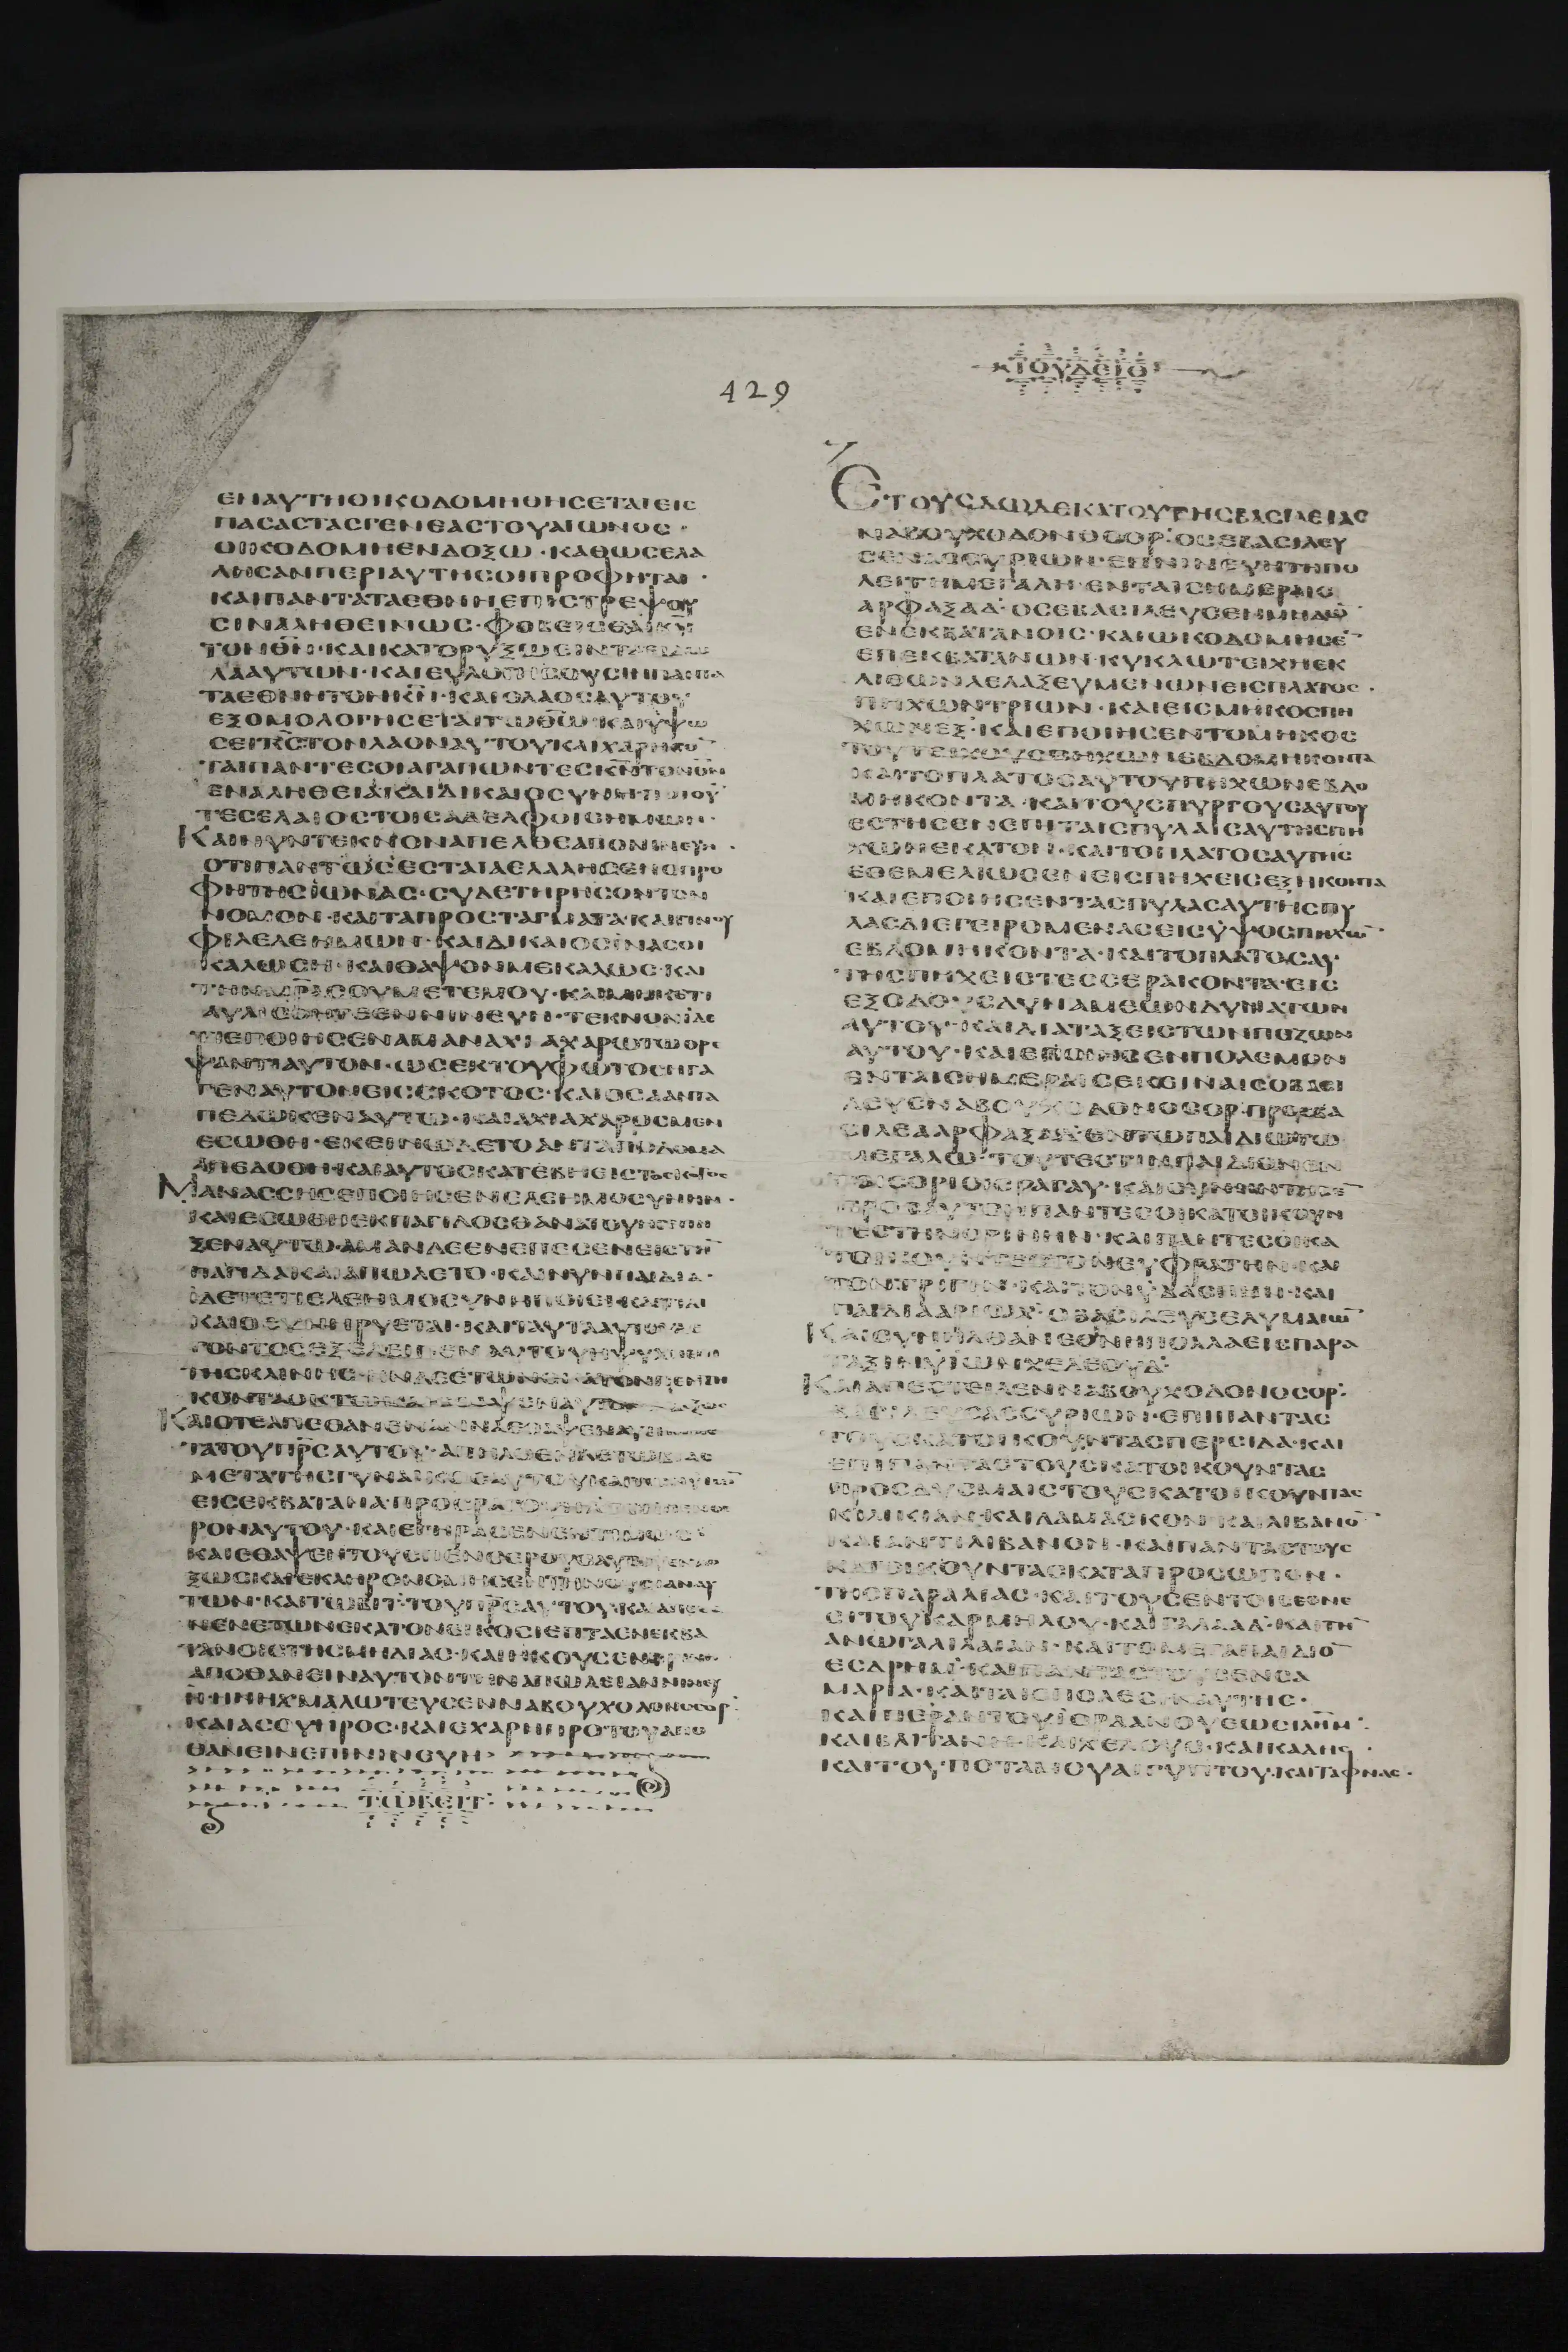 429
ΕΝΑΥΤΗΟΙΚΟΔΟΜΗΘΗСΕΤΑΙΕΙС
ΠΑСΑСΤΑСΓΕΝΕΑСΤΟΥΑΙΩΝΟС·
ΟΙΚΟΔΟΜΗΕΝΔΟΞΩ·ΚΑΘΩСΕΛΑ
ΛΗСΑΝΠΕΡΙΑΥΤΗСΟΙΠΡΟΦΗΤΑΙ·
ΚΑΙΠΑΝΤΑΤΑΕΘΝΗΕΠΙСΤΡΕΨΟΥ
СΙΝΑΛΗΘΕΙΝΩС·ΦΟΒΕΙСΘΑΙΚΝ
ΤΟΝΘΝ·ΚΑΙΚΑΤΟΡΥΞΩСΙΝΤΑ
ΑΥΤΩΝ·ΚΑΙΕΥΛΟΓΗСΟΥСΙΝΠΑΝΤΑ
ΤΑΕΘΝΗΤΟΝΚΝ·ΚΑΙΟΛΑΟСΑΥΤΟΥ
ΕΞΟΜΟΛΟΓΗСΕΤΑΙΤΩΘΩ·ΚΑΙΥΨΩ
СΕΙΚСΤΟΝΛΑΟΝΑΥΤΟΥΚΑΙΧΑΡΗСΟ
ΤΑΙΠΑΝΤΕСΟΙΑΓΑΠΩΝΤΕСΚΝΤΟΝΘΝ
ΕΝΑΛΗΘΕΙΑΚΑΙΔΙΚΑΙΟСΥΝΗ·ΠΟΙΟΥ
ΤΕСΕΛΑΙΟСΤΟΙСΑΔΕΛΦΟΙСΗΜΩΝ·
ΚΑΙΝΥΝΤΕΚΝΟΝΑΠΕΛΘΕΑΠΟΝΙΝΕΥΗ·
ΟΤΙΠΑΝΤΩСΕСΤΑΙΑΕΛΑΛΗСΕΝΟΠΡΟ
ΦΗΤΗСΙΩΝΑС·СΥΔΕΤΗΡΗСΟΝΤΟΝ
ΝΟΜΟΝ·ΚΑΙΤΑΠΡΟСΤΑΓΜΑΤΑ·ΚΑΙΓΙΝΟΥ
ΦΙΛΕΛΕΗΜΩΝ·ΚΑΙΔΙΚΑΙΟСΙΝΑСΟΙ
ΚΑΛΩСΗ·ΚΑΙΘΑΨΟΝΜΕΚΑΛΩС·ΚΑΙ
ΤΗΝΜΡΑСΟΥΜΕΤΕΜΟΥ·ΚΑΙΜΗΚΕΤΙ
ΑΥΛΙСΘΗΤΕΕΝΝΙΝΕΥΗ·ΤΕΚΝΟΝΙΔΕ
ΤΙΕΠΟΙΗСΕΝΑΜΑΝΑΧΙΑΧΑΡΩΤΩΘΡΕ
ΨΑΝΤΙΑΥΤΟΝ·ΩСΕΚΤΟΥΦΩΤΟСΗΓΑ
ΓΕΝΑΥΤΟΝΕΙССΚΟΤΟС·ΚΑΙΟСΑΑΝΤΑ
ΠΕΔΩΚΕΝΑΥΤΩ·ΚΑΙΑΧΙΑΧΑΡΟСΜΕΝ
ΕСΩΘΗ·ΕΚΕΙΝΩΔΕΤΟΑΝΤΑΠΟΔΟΜΑ
ΑΠΕΔΟΘΗ·ΚΑΙΑΥΤΟСΚΑΤΕΒΗΕΙСΤΟСΚΟΤΟС
ΜΑΝΑССΗСΕΠΟΙΗСΕΝΕΛΕΗΜΟСΥΝΗΝ·
ΚΑΙΕСΩΘΗΕΚΠΑΓΙΔΟСΘΑΝΑΤΟΥΗСΕΠΗ
ΞΕΝΑΥΤΩ·ΑΜΑΝΔΕΕΝΕΠΕСΕΝΕΙСΤΗ
ΠΑΓΙΔΑΚΑΙΑΠΩΛΕΤΟ·ΚΑΙΝΥΝΠΑΙΔΙΑ·
ΙΔΕΤΕΤΙΕΛΕΗΜΟСΥΝΗΠΟΙΕΙ·ΚΑΙΤΙΔΙ
ΚΑΙΟСΥΝΗΡΥΕΤΑΙ·ΚΑΙΤΑΥΤΑΑΥΤΟΥΛΕ
ΓΟΝΤΟСΕΞΕΛΕΙΠΕΝΑΥΤΟΥΗΨΥΧΗ
ΤΗСΚΛΙΝΗС·ΗΝΔΕΕΤΩΝΕΚΑΤΟΝΠΕΝΤΗ
ΚΟΝΤΑΟΚΤΩ·ΚΑΙΕΘΑΨΕΝΑΥΤΟ
ΚΑΙΟΤΕΑΠΕΘΑΝΕΝΑΝΝΑΕΘΑΨΕΝΑΥΤΗ
ΤΑΤΟΥΠΡСΑΥΤΟΥ·ΑΠΗΛΘΕΝΔΕΤΩΒΙΑС
ΜΕΤΑΤΗСΓΥΝΑΙΚΟСΑΥΤΟΥΚΑΙ
ΕΙСΕΚΒΑΤΑΝΑ·ΠΡΟСΡΑΓΟΥΗΛ
ΡΟΝΑΥΤΟΥ·ΚΑΙΕΓΗΡΑСΕΝΕΝΤΙΜΩС·
ΚΑΙΕΘΑΨΕΝΤΟΥСΠΕΝΘΕΡΟΥСΑΥΤΟΥ
ΞΩС·ΚΑΙΕΚΛΗΡΟΝΟΜΗСΕΝΤΗΝΟΥСΙΑΝΑΥ
ΤΩΝ·ΚΑΙΤΩΒΙΤ·ΤΟΥΠΡСΑΥΤΟΥ·ΚΑΙΑΠΕΘΑ
ΝΕΝΕΤΩΝΕΚΑΤΟΝΕΙΚΟСΙΕΠΤΑΕΝΕΚΒΑ
ΤΑΝΟΙСΤΗСΜΗΔΙΑС·ΚΑΙΗΚΟΥСΕΝ
ΑΠΟΘΑΝΕΙΝΑΥΤΟΝΤΗΝΑΠΩΛΕΙΑΝΝΙΝΕΥΗ
ΗΝΗΧΜΑΛΩΤΕΥСΕΝΝΑΒΟΥΧΟΔΟΝΟСΟΡ·
ΚΑΙΑССΥΗΡΟС·ΚΑΙΕΧΑΡΗΠΡΟΤΟΥΑΠΟ
ΘΑΝΕΙΝΕΠΙΝΙΝΕΥΗ
ΤΩΒΕΙΤ
ΙΟΥΔΕΙΘ
ΕΤΟΥСΔΩΔΕΚΑΤΟΥΤΗСΒΑСΙΛΕΙΑС
ΝΑΒΟΥΧΟΔΟΝΟСΟΡ·ΟСΕΒΑСΙΛΕΥ
СΕΝΑССΥΡΙΩΝ·ΕΝΝΙΝΕΥΗΤΗΠΟ
ΛΕΙΤΗΜΕΓΑΛΗ·ΕΝΤΑΙСΗΜΕΡΑΙС
ΑΡΦΑΞΑΔ·ΟСΕΒΑСΙΛΕΥСΕΝΜΗΔΩ
ΕΝΕΚΒΑΤΑΝΟΙС·ΚΑΙΩΚΟΔΟΜΗСΕ
ΕΠΕΚΒΑΤΑΝΩΝ·ΚΥΚΛΩΤΕΙΧΗΕΚ
ΛΙΘΩΝΛΕΛΑΞΕΥΜΕΝΩΝΕΙСΠΛΑΤΟС·
ΠΗΧΩΝΤΡΙΩΝ·ΚΑΙΕΙСΜΗΚΟСΠΗ
ΧΩΝΕΞ·ΚΑΙΕΠΟΙΗСΕΝΤΟΜΗΚΟС
ΤΟΥΤΕΙΧΟΥСΠΗΧΩΝΕΒΔΟΜΗΚΟΝΤΑ
ΚΑΙΤΟΠΛΑΤΟСΑΥΤΟΥΠΗΧΩΝΕΒΔΟ
ΜΗΚΟΝΤΑ·ΚΑΙΤΟΥСΠΥΡΓΟΥСΑΥΤΟΥ
ΕСΤΗСΕΝΕΠΙΤΑΙСΠΥΛΑΙСΑΥΤΗСΠΗ
ΧΩΝΕΚΑΤΟΝ·ΚΑΙΤΟΠΛΑΤΟСΑΥΤΗС
ΕΘΕΜΕΛΙΩСΕΝΕΙСΠΗΧΕΙСΕΞΗΚΟΝΤΑ
ΚΑΙΕΠΟΙΗСΕΝΤΑСΠΥΛΑСΑΥΤΗСΠΥ
ΛΑСΔΙΕΓΕΙΡΟΜΕΝΑСΕΙСΥΨΟСΠΗΧΩ·
ΕΒΔΟΜΗΚΟΝΤΑ·ΚΑΙΤΟΠΛΑΤΟСΑΥ
ΤΗСΠΗΧΕΙСΤΕССΕΡΑΚΟΝΤΑ·ΕΙС
ΕΞΟΔΟΥСΔΥΝΑΜΕΩΝΔΥΝΑΤΩΝ
ΑΥΤΟΥ·ΚΑΙΔΙΑΤΑΞΕΙСΤΩΝΠΕΖΩΝ
ΑΥΤΟΥ·ΚΑΙΕΠΟΙΗСΕΝΠΟΛΕΜΟΝ
ΕΝΤΑΙСΗΜΕΡΑΙСΕΚΕΙΝΑΙСΟΒΑСΙ
ΛΕΥСΝΑΒΟΥΧΟΔΟΝΟСΟΡ·ΠΡΟСΒΑ
СΙΛΕΑΑΡΦΑΞΑΔ·ΕΝΤΩΠΑΙΔΙΩΤΩ
ΜΕΓΑΛΩ·ΤΟΥΤΕСΤΙΝΠΑΙΔΙΟΝΕΝ
ΤΟΙСΟΡΙΟΙСΡΑΓΑΥ·ΚΑΙСΥΝΗΝΤΗСΑ
ΠΡΟСΑΥΤΟΝΠΑΝΤΕСΟΙΚΑΤΟΙΚΟΥΝ
ΤΕСΤΗΝΟΡΙΝΗΝ·ΚΑΙΠΑΝΤΕСΟΙΚΑ
ΤΟΙΚΟΥΝΤΕСΤΟΝΕΥΦΡΑΤΗΝ·ΚΑΙ
ΤΟΝΤΙΓΡΙΝ·ΚΑΙΤΟΝΥΔΑСΠΗΝ·ΚΑΙ
ΠΑΙΔΙΑΑΡΙΩΧ·ΟΒΑСΙΛΕΥСΕΛΥΜΑΙΩ
ΚΑΙСΥΝΗΛΘΑΝΕΘΝΗΠΟΛΛΑΕΙСΠΑΡΑ
ΤΑΞΙΝΥΙΩΝΧΕΛΕΟΥΔ·
ΚΑΙΑΠΕСΤΕΙΛΕΝΝΑΒΟΥΧΟΔΟΝΟСΟΡ·
ΒΑСΙΛΕΥСΑССΥΡΙΩΝ·ΕΠΙΠΑΝΤΑС
ΤΟΥСΚΑΤΟΙΚΟΥΝΤΑСΠΕΡСΙΔΑ·ΚΑΙ
ΕΠΙΠΑΝΤΑСΤΟΥСΚΑΤΟΙΚΟΥΝΤΑС
ΠΡΟСΔΥСΜΑΙСΤΟΥСΚΑΤΟΙΚΟΥΝΤΑС
ΚΙΛΙΚΙΑΝ·ΚΑΙΔΑΜΑСΚΟΝ·ΚΑΙΛΙΒΑΝΟ
ΚΑΙΑΝΤΙΛΙΒΑΝΟΝ·ΚΑΙΠΑΝΤΑСΤΟΥС
ΚΑΤΟΙΚΟΥΝΤΑСΚΑΤΑΠΡΟСΩΠΟΝ·
ΤΗСΠΑΡΑΛΙΑС·ΚΑΙΤΟΥСΕΝΤΟΙСΕΘΝΕ
СΙΤΟΥΚΑΡΜΗΛΟΥ·ΚΑΙΓΑΛΑΑΔ·ΚΑΙΤΗ
ΑΝΩΓΑΛΙΛΑΙΑΝ·ΚΑΙΤΟΜΕΓΑΠΑΙΔΙΟ
ΕСΔΡΗΜ·ΚΑΙΠΑΝΤΑСΤΟΥСΕΝСΑ
ΜΑΡΙΑ·ΚΑΙΤΑΙСΠΟΛΕСΙΝΑΥΤΗС·
ΚΑΙΠΕΡΑΝΤΟΥΙΟΡΔΑΝΟΥΕΩСΙΛΗΜ·
ΚΑΙΒΑΙΤΑΝΗ·ΚΑΙΧΕΛΟΥС·ΚΑΙΚΑΔΗС·
ΚΑΙΤΟΥΠΟΤΑΜΟΥΑΙΓΥΠΤΟΥ·ΚΑΙΤΑΦΝΑС·